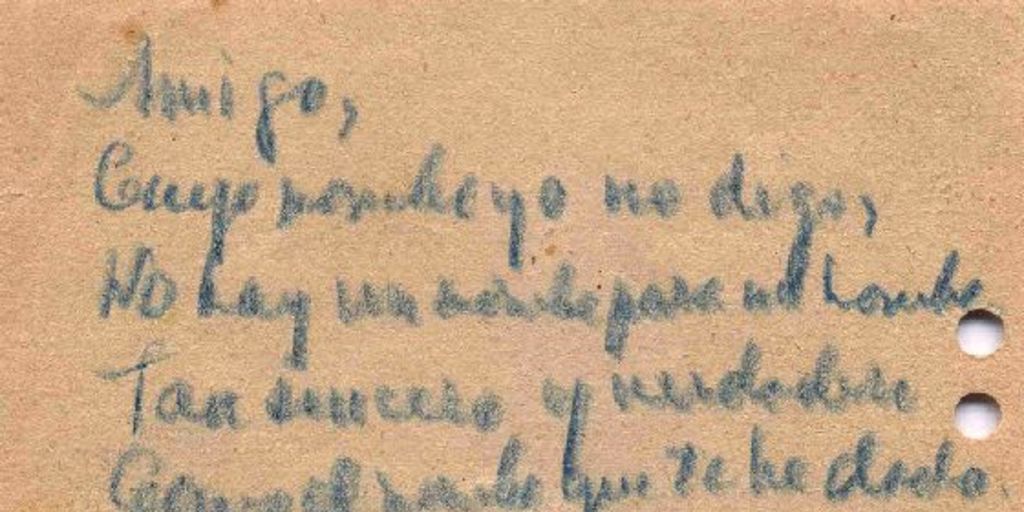 Amigo,
Cuyo nombre yo no digo,
No hay un nombre para un hombre
Tan sincero y verdadero
Como el nombre que te he dado.